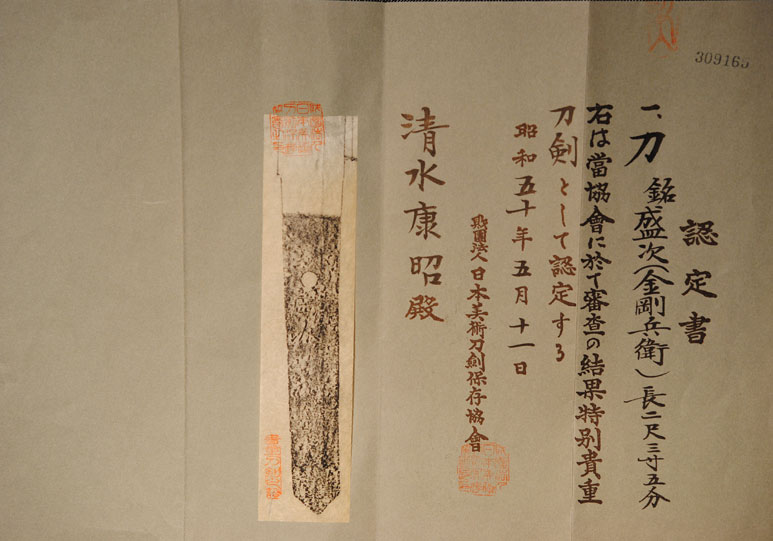 309165
認定書
一、刀 銘 盛次(金剛兵衛)長二尺三寸五分
右は當協會に於て審査の結果特別貴重
刀剣として認定する
昭和五十年五月十一日
財團法人日本美術刀劍保存協會
清水康昭殿